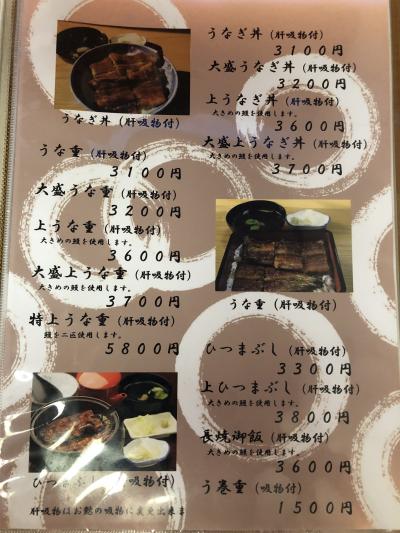 うなぎ丼 (肝吸物付)
3100円
大盛うなぎ丼 (肝吸物付)
3200円
上うなぎ丼 (肝吸物付)
大きめの鰻を使用します。
3600円
大盛上うなぎ丼 (肝吸物付)
大きめの鰻を使用します。
3700円
うなぎ丼 (肝吸物付)
うな重 (肝吸物付)
3100円
大盛うな重 (肝吸物付)
3200円
上うな重 (肝吸物付)
大きめの鰻を使用します。
3600円
大盛上うな重 (肝吸物付)
大きめの鰻を使用します。
3700円
特上うな重 (肝吸物付)
鰻を二匹使用します。
5800円
うな重 (肝吸物付)
ひつまぶし (肝吸物付)
3300円
上ひつまぶし (肝吸物付)
大きめの鰻を使用します。
3800円
長焼御飯 (肝吸物付)
大きめの鰻を使用します。
3600円
う巻重 (吸物付)
1500円
ひつまぶし 吸物付)
肝吸物はお麩の吸物に変更出来ま